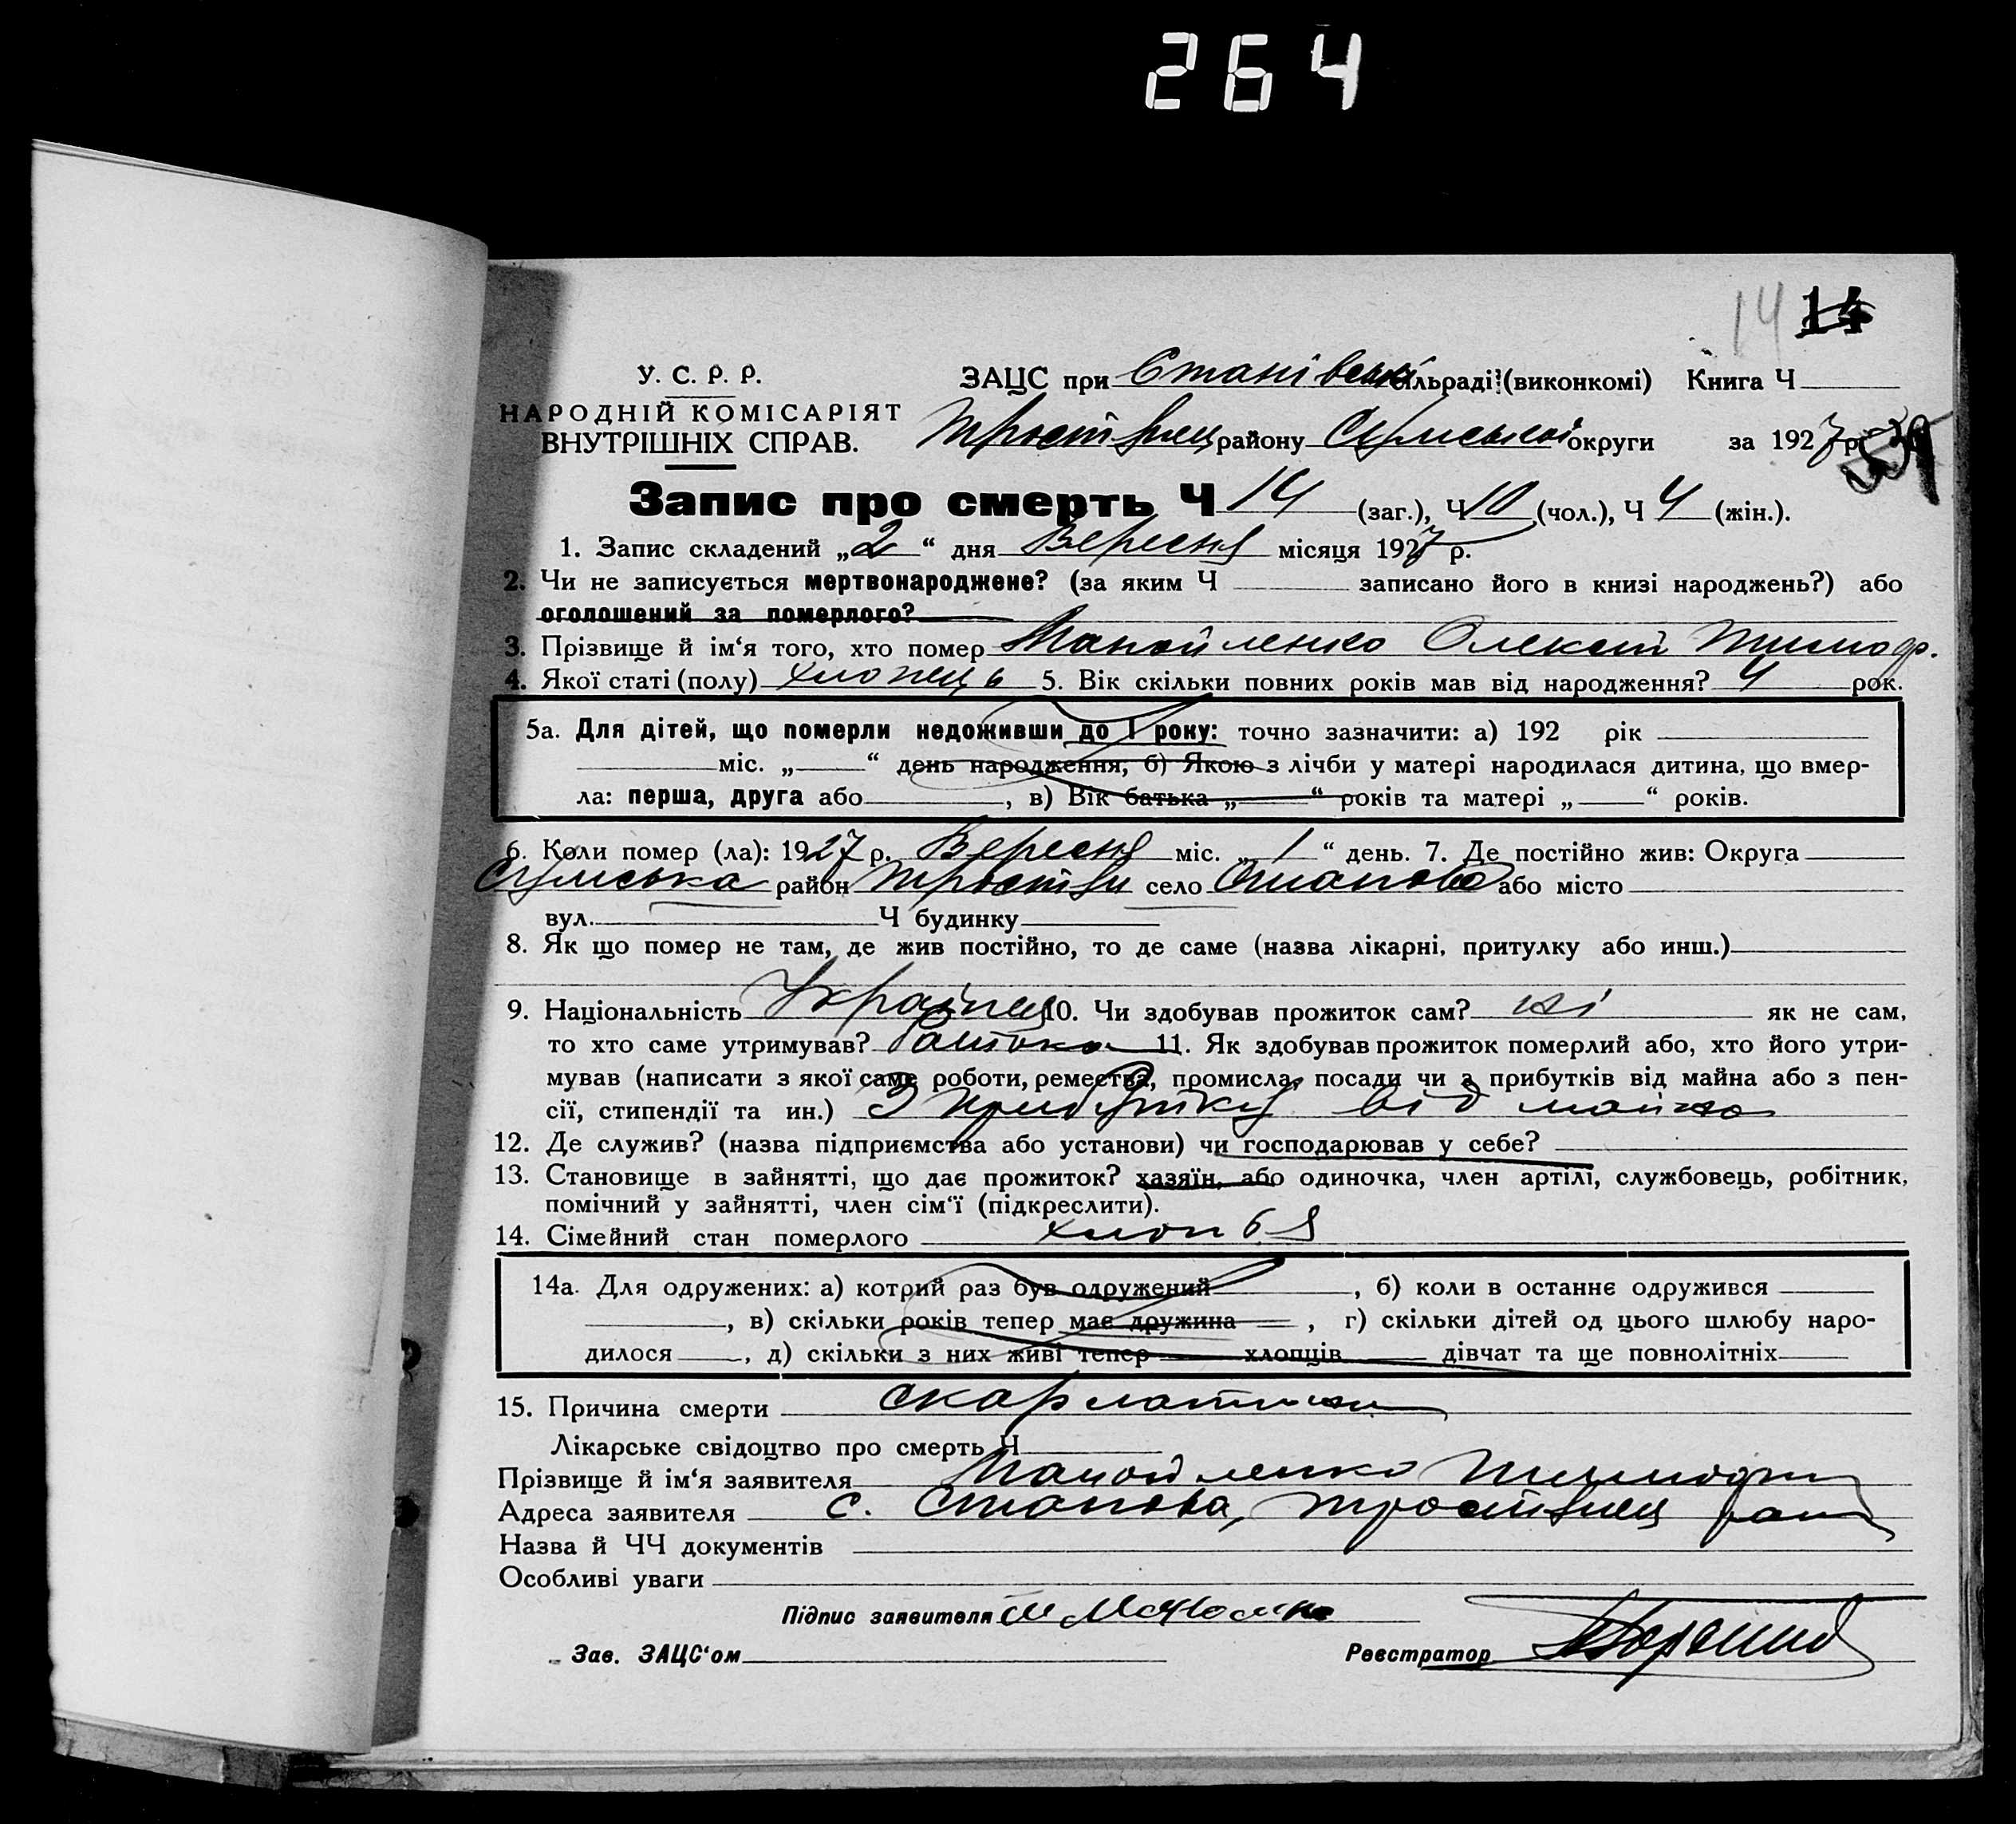 264
14 14
У. С. Р. Р. ЗАЦС при Станівські сільраді (виконкомі) Книга Ч
НАРОДНІЙ КОМІСАРІЯТ
ВНУТРІШНІХ СПРАВ. Тростянец району Сумської округи за 1927 р.
Запис про смерть Ч 14 (заг.), Ч 10 (чол.), Ч 4 (жін.).
1. Запис складений „2“ дня Вересня місяця 1927 р.
2. Чи не записується мертвонароджене? (за яким Ч записано його в книзі народжень?) або
оголошений за померлого?
3. Прізвище й ім‘я того, хто помер Манойленко Олексій Тимоф.
4. Якої статі (полу) хлопець 5. Вік скільки повних років мав від народження? 4 рок.
5а. Для дітей, що померли недоживши до 1 року: точно зазначити: а) 192 рік
міс. „ “ день народження, б) Якою з лічби у матері народилася дитина, що вмер-
ла: перша, друга або , в) Вік батька „ “ років та матері „ “ років.
6. Коли помер (ла): 1927 р. Вересня міс. „1“ день. 7. Де постійно жив: Округа
Сумська район Тростян село Станова або місто
вул. Ч будинку
8. Як що помер не там, де жив постійно, то де саме (назва лікарні, притулку або инш.)
9. Національність Українец 10. Чи здобував прожиток сам? ні як не сам,
то хто саме утримував? батько 11. Як здобував прожиток померлий або, хто його утри-
мував (написати з якої саме роботи, ремества, промисла, посади чи з прибутків від майна або з пен-
сії, стипендії та ин.) З прибутку від майна
12. Де служив? (назва підприємства або установи) чи господарював у себе?
13. Становище в зайнятті, що дає прожиток? хазяїн, або одиночка, член артілі, службовець, робітник,
помічний у зайнятті, член сім‘ї (підкреслити).
14. Сімейний стан померлого
14а. Для одружених: а) котрий раз був одружений , б) коли в останнє одружився
, в) скільки років тепер має дружина , г) скільки дітей од цього шлюбу наро-
дилося , д) скільки з них живі тепер хлопців дівчат та ще повнолітніх
15. Причина смерти скарлатина
Лікарське свідоцтво про смерть Ч
Прізвище й ім‘я заявителя Манойленко Тимофій
Адреса заявителя с. Станова, Тростянец рай
Назва й ЧЧ документів
Особливі уваги
Підпис заявителя
Зав. ЗАЦС‘ом Реєстратор